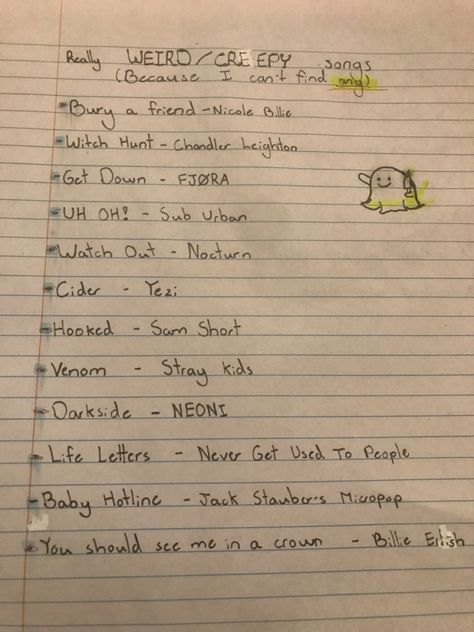 Really WEIRD/CREEPY songs
(Because I can't find any)
- Bury a friend - Nicole Billie
- Witch Hunt - Chandler Leighton
- Get Down - FJØRA
- UH OH! - Sub Urban
- Watch Out - Nocturn
- Cider - Yezi
- Hooked - Sam Short
- Venom - Stray kids
- Darkside - NEONI
- Life Letters - Never Get Used To People
- Baby Hotline - Jack Stauber's Micropop
- You should see me in a crown - Billie Eilish